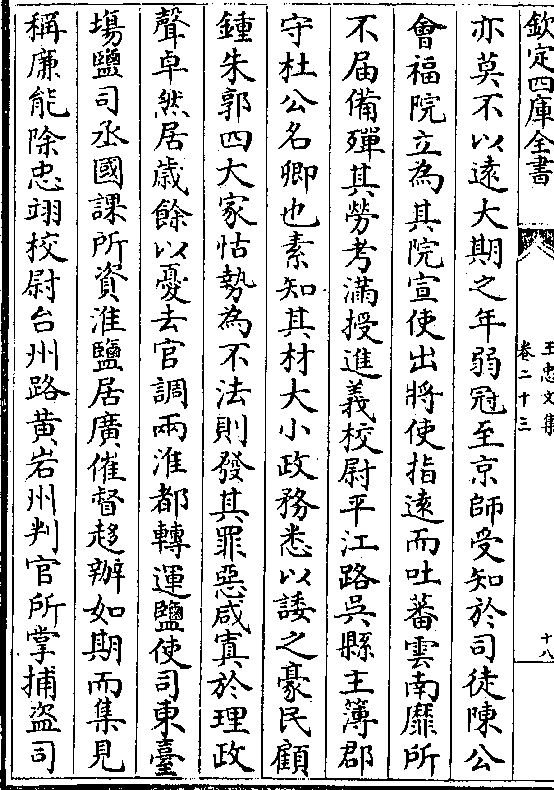 欽定四庫全書
王忠文集
卷二十三
十八
亦莫不以遠大期之年弱冠至京師受知於司徒陳公
會福院立為其院宣使出將使指遠而吐蕃雲南靡所
不届備殫其勞考滿授進義校尉平江路吳縣主簿郡
守杜公名卿也素知其材大小政務悉以諉之豪民顧
鍾朱郭四大家怙勢為不法則發其罪惡咸寘於理政
聲卓然居歲餘以憂去官調兩淮都轉運鹽使司東臺
塲鹽司丞國課所資淮鹽居廣催督趍辦如期而集見
稱廉能除忠翊校尉台州路黄岩州判官所掌捕盜司